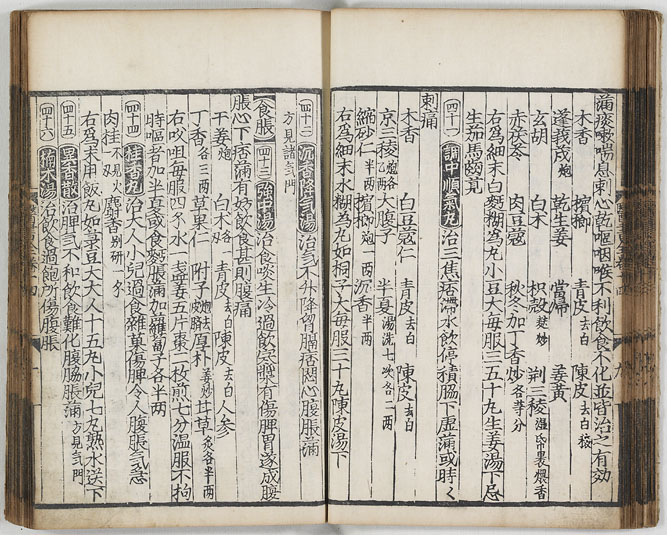 滿痰嗽喘息刺心乾嘔咽喉不利飲食不化並皆治之有効
木香 檳榔 青皮去白 陳皮去白
蓬莪茂炮 乾生姜 當歸 姜黃
玄胡 白木 枳殼麩炒 荆三稜濕帋裹煨香
赤茯苓 肉豆蔻 秋冬加丁香炒各等分
右爲細末白麪糊爲丸小豆大每服三五十丸生姜湯下忌
生茄馬
四十一 調中順气丸 治三焦痞滯水飲停積脇下虛滿或時〻
刺痛
木香 白豆蔻仁 青皮去白 陳皮去白
京三稜炮各一兩 大腹子 半夏湯洗七次各二兩
縮砂仁半兩 檳榔炮一兩 沉香半兩
右爲細末水糊爲丸如桐子大每服三十丸陳皮湯下
四十二 沉香降气湯 治气不升降胷膈痞悶心腹脹滿
方見諸气門
食脹 四十三 強中湯 治食啖生冷過飲寒漿有傷脾胃遂成腹
脹心下痞滿有妨飲食甚則腹痛
平姜炮 白木各 青皮去白 陳皮去白 人參
丁香各三兩 草果仁 附子 厚朴姜炒 甘草炙各半兩
右㕮咀每服四㦮水一盞姜五片棗二枚煎七分溫服不拘
時嘔者加半夏或食麪脹滿加蘿蔔子各半兩
四十四 桂香丸 治大人小兒過食雜菓傷脾令人腹脹气急
肉桂不見火 麝香別研一㦮
右爲末用飯丸如菉豆大大人十五丸小兒七丸熟水送下
四十五 異香散 治脾气不和飲食難化腹脇脹滿方見气門
四十六 南木湯 治飲食過飽所傷腹脹